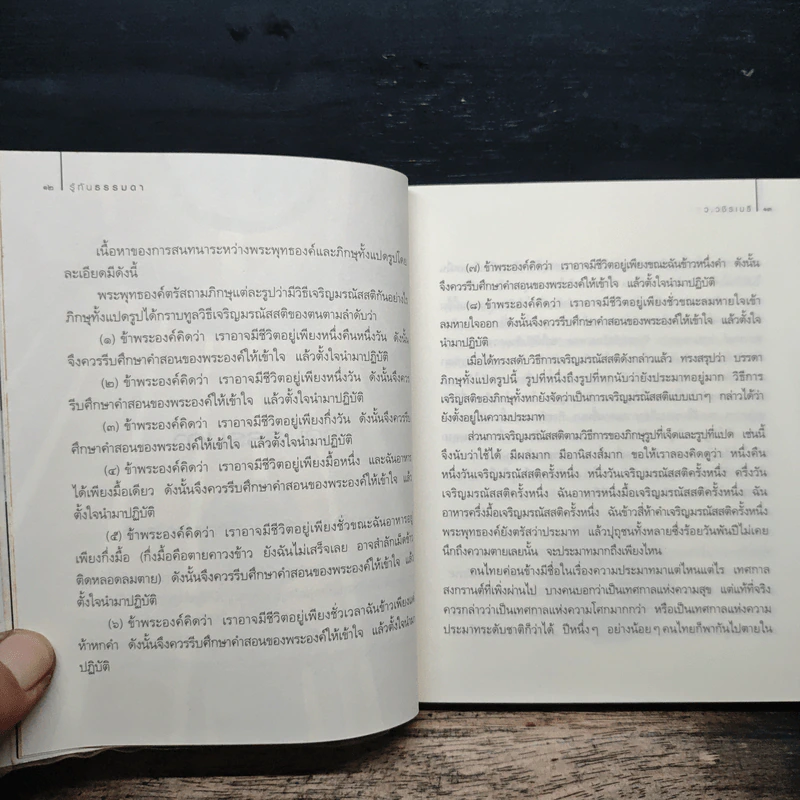 ๑๒ รู้ทันธรรมดา
เนื้อหาของการสนทนาระหว่างพระพุทธองค์และภิกษุทั้งแปดรูปโดย
ละเอียดมีดังนี้
พระพุทธองค์ตรัสถามภิกษุแต่ละรูปว่ามีวิธีเจริญมรณัสสติกันอย่างไร
ภิกษุทั้งแปดรูปได้กราบทูลวิธีเจริญมรณัสสติของตนตามลำดับว่า
(๑) ข้าพระองค์คิดว่า เราอาจมีชีวิตอยู่เพียงหนึ่งคืนหนึ่งวัน ดังนั้น
จึงควรรีบศึกษาคำสอนของพระองค์ให้เข้าใจ แล้วตั้งใจนำมาปฏิบัติ
(๒) ข้าพระองค์คิดว่า เราอาจมีชีวิตอยู่เพียงหนึ่งวัน ดังนั้นจึงควร
รีบศึกษาคำสอนของพระองค์ให้เข้าใจ แล้วตั้งใจนำมาปฏิบัติ
(๓) ข้าพระองค์คิดว่า เราอาจมีชีวิตอยู่เพียงกึ่งวัน ดังนั้นจึงควรรีบ
ศึกษาคำสอนของพระองค์ให้เข้าใจ แล้วตั้งใจนำมาปฏิบัติ
(๔) ข้าพระองค์คิดว่า เราอาจมีชีวิตอยู่เพียงมื้อหนึ่ง และฉันอาหาร
ได้เพียงมื้อเดียว ดังนั้นจึงควรรีบศึกษาคำสอนของพระองค์ให้เข้าใจ แล้ว
ตั้งใจนำมาปฏิบัติ
(๕) ข้าพระองค์คิดว่า เราอาจมีชีวิตอยู่เพียงชั่วขณะฉันอาหาร
เพียงกึ่งมื้อ (กึ่งมื้อคือตายคาวงข้าว ยังฉันไม่เสร็จเลย อาจสำลักเม็ดข้าว
ติดหลอดลมตาย) ดังนั้นจึงควรรีบศึกษาคำสอนของพระองค์ให้เข้าใจ แล้ว
ตั้งใจนำมาปฏิบัติ
(๖) ข้าพระองค์คิดว่า เราอาจมีชีวิตอยู่เพียงชั่วเวลาฉันข้าวเพียง
ห้าหกคำ ดังนั้นจึงควรรีบศึกษาคำสอนของพระองค์ให้เข้าใจ แล้วตั้งใจนำมา
ปฏิบัติ
ว.วชิรเมธี ๑๓
(๗) ข้าพระองค์คิดว่า เราอาจมีชีวิตอยู่เพียงขณะฉันข้าวหนึ่งคำ ดังนั้น
จึงควรรีบศึกษาคำสอนของพระองค์ให้เข้าใจ แล้วตั้งใจนำมาปฏิบัติ
(๘) ข้าพระองค์คิดว่า เราอาจมีชีวิตอยู่เพียงชั่วขณะลมหายใจเข้า
ลมหายใจออก ดังนั้นจึงควรรีบศึกษาคำสอนของพระองค์ให้เข้าใจ แล้วตั้งใจ
นำมาปฏิบัติ
เมื่อได้ทรงสดับวิธีการเจริญมรณัสสติดังกล่าวแล้ว ทรงสรุปว่า บรรดา
ภิกษุทั้งแปดรูปนี้ รูปที่หนึ่งถึงรูปที่หกนับว่ายังประมาทอยู่มาก วิธีการ
เจริญสติของภิกษุทั้งหกยังจัดว่าเป็นการเจริญมรณัสสติแบบเบาๆ กล่าวได้ว่า
ยังตั้งอยู่ในความประมาท
ส่วนการเจริญมรณัสสติตามวิธีการของภิกษุรูปที่เจ็ดและรูปที่แปด เช่นนี้
จึงนับว่าใช้ได้ มีผลมาก มีอานิสงส์มาก ขอให้เราลองคิดดูว่า หนึ่งคืน
หนึ่งวันเจริญมรณัสสติครั้งหนึ่ง หนึ่งวันเจริญมรณัสสติครั้งหนึ่ง ครึ่งวัน
เจริญมรณัสสติครั้งหนึ่ง ฉันอาหารหนึ่งมื้อเจริญมรณัสสติครั้งหนึ่ง ฉัน
อาหารครึ่งมื้อเจริญมรณัสสติครั้งหนึ่ง ฉันข้าวสี่ห้าคำเจริญมรณัสสติครั้งหนึ่ง
พระพุทธองค์ยังตรัสว่าประมาท แล้วปุถุชนทั้งหลายซึ่งร้อยวันพันปีไม่เคย
นึกถึงความตายเลยนั้น จะประมาทมากถึงเพียงไหน
คนไทยค่อนข้างมีชื่อในเรื่องความประมาทมาแต่ไหนแต่ไร เทศกาล
สงกรานต์ที่เพิ่งผ่านไป บางคนบอกว่าเป็นเทศกาลแห่งความสุข แต่แท้ที่จริง
ควรกล่าวว่าเป็นเทศกาลแห่งความโศกมากกว่า หรือเป็นเทศกาลแห่งความ
ประมาทระดับชาติก็ว่าได้ ปีหนึ่งๆ อย่างน้อยๆ คนไทยก็พากันไปตายใน